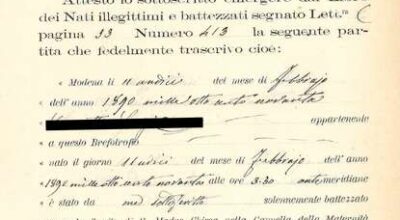 Attesto io sottoscritto emergere dal Libro
dei Nati illegittimi e battezzati segnato Lett.ra C
pagina 33 Numero 413 la seguente par-
tita che fedelmente trascrivo cioè:
« Modena li 11 undici del mese di febbrajo
« dell'anno 1890 mille otto cento novanta
appartenente
« a questo Brefotrofio
« nato il giorno 11 undici del mese di febbrajo dell'anno
« 1890 mille otto cento novanta alle ore 3.30 antemeridiane
« è stato da me sottoscritto solennemente battezzato
della Maternità